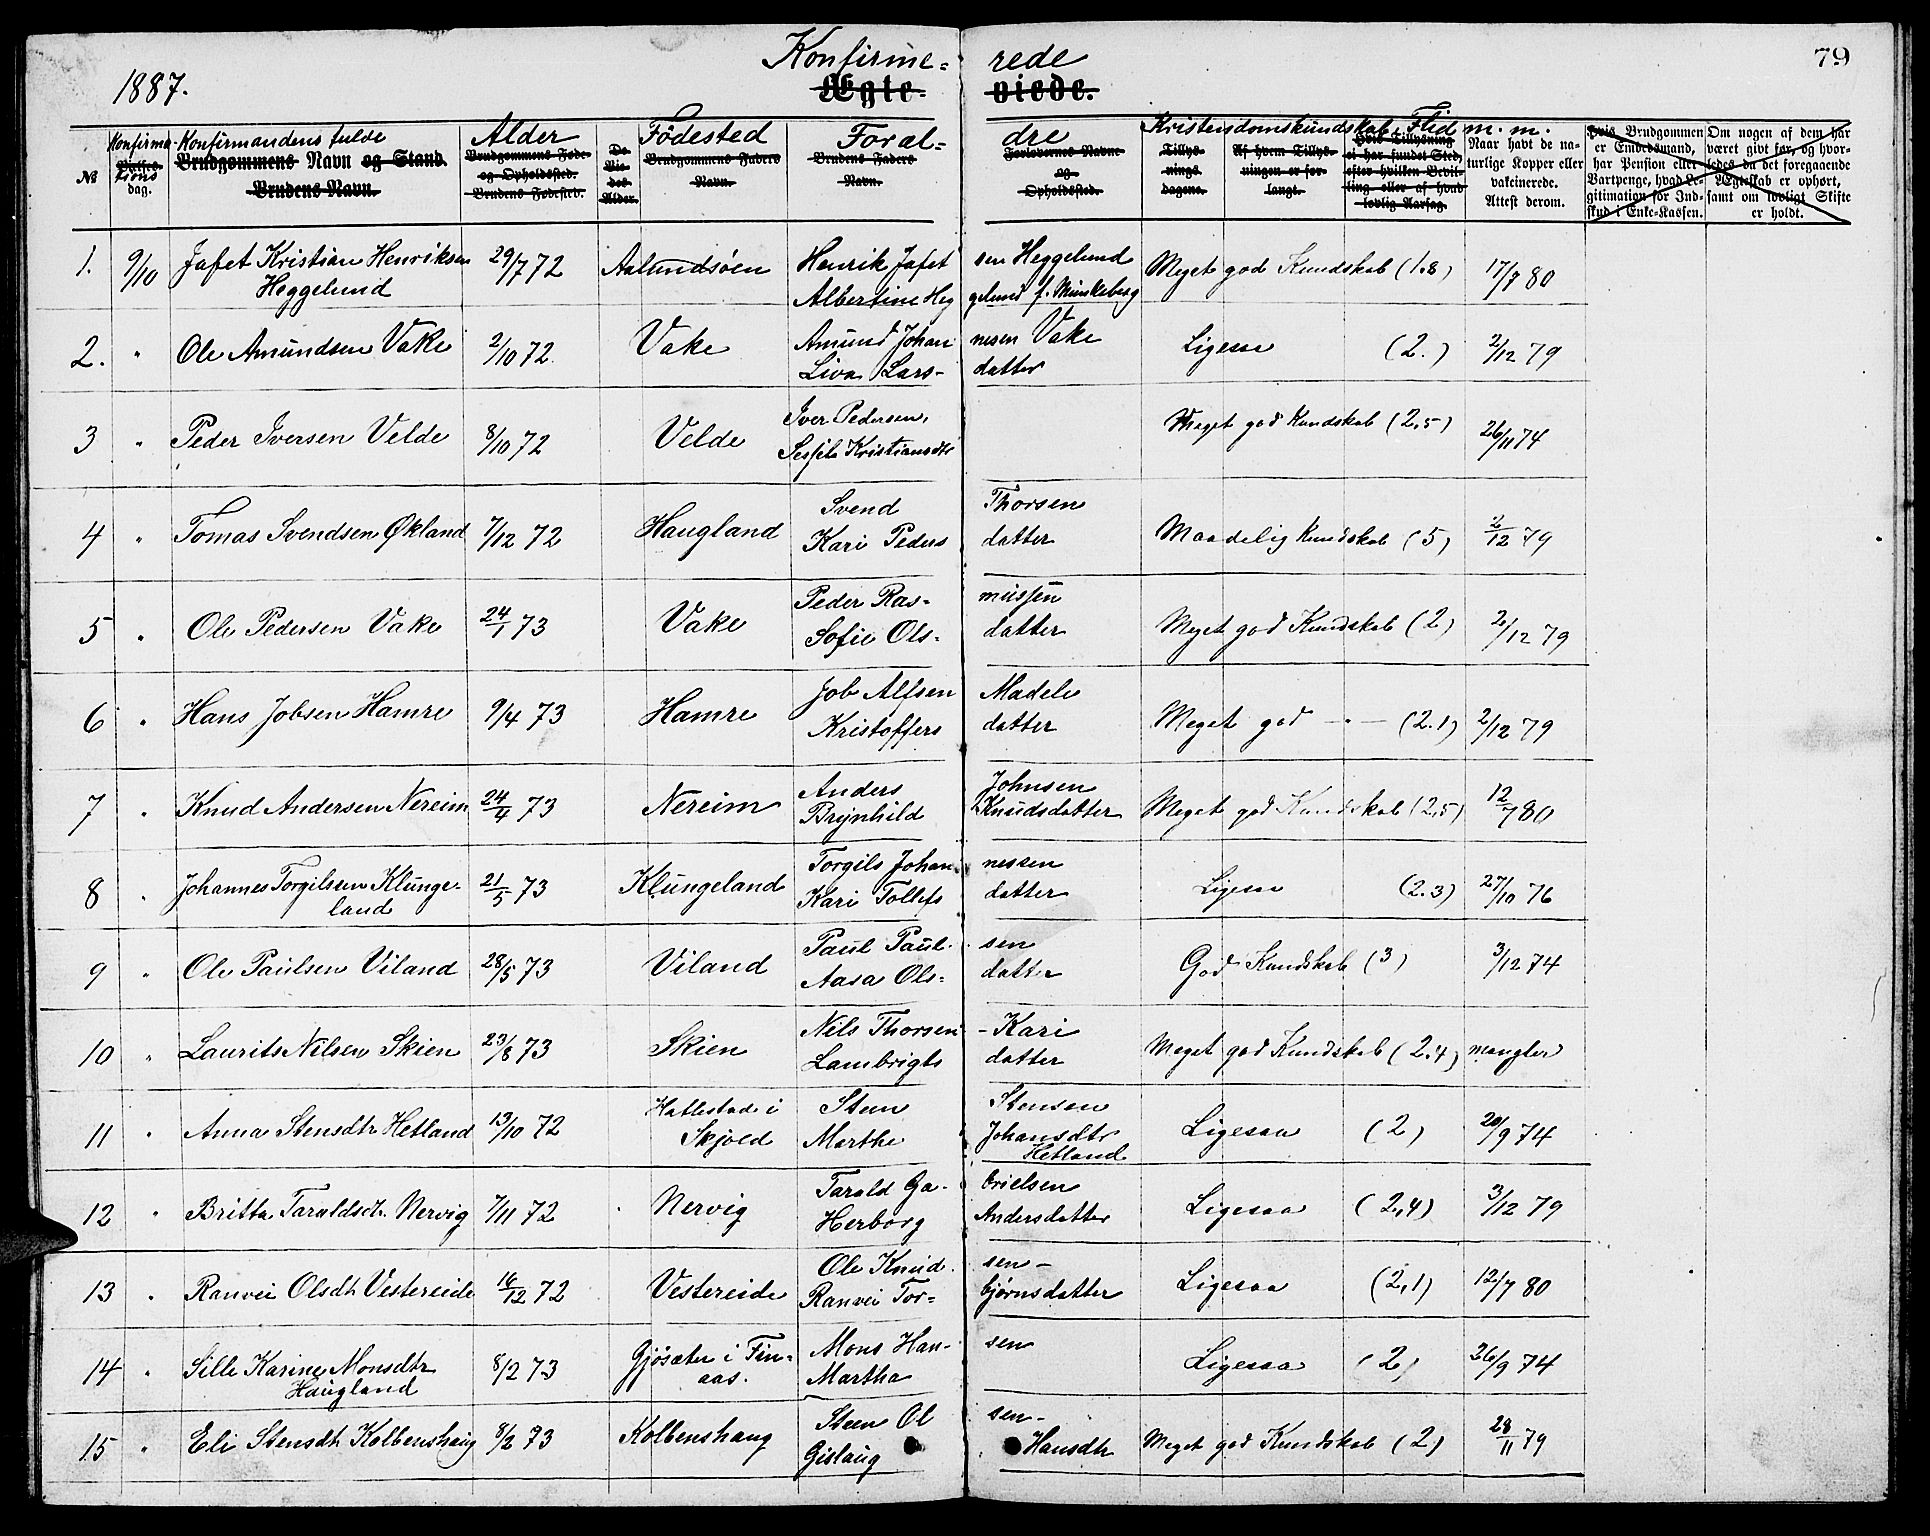 Konfirme= rede
79
1887.
Ægte= viede.
Konfirma-
tions
dag.
№
Konfirmandens fulde
Brudgommens Navn og Stand.
Brudens Navn.
Alder
Brudgommens Føde-
og Opholdssted.
Brudens Fødested.
De
Vie-
des
Alder.
Fødested
Brudgommens Faders
Navn.
Foral= dre
Brudens Faders
Navn.
Forlovernes Navne
og
Opholdssted.
Kristendomskundskab, Flid m. m.
Tillys-
nings-
dagene.
Af hvem Tillys-
ningen er for-
langt.
Hvis Tillysning
ei har fundet Sted,
efter hvilken Bevil-
ling eller af hvad
lovlig Aarsag.
Naar havt de na-
turlige Kopper eller
vakcinerede.
Attest derom.
Hvis Brudgommen
er Embedsmand,
har Pension eller
Vartpenge, hvad Le-
gitimation for Ind-
skud i Enke-Kassen.
Om nogen af dem har
været givt før, og hvor-
ledes da det foregaaende
Ægteskab er ophørt,
samt om lovligt Skifte
er holdt.
1. 9/10 Jafet Kristian Henriksen 29/7 72 Aalundsøen Henrik Jafet sen Heggelund Meget god Kundskab (1.8) 17/7 80
Heggelund Albertine Heg gelund f. Munkeberg
2. " Ole Amundsen Vake 2/10 72. Vake Amund Johan nesen Vake Ligesaa (2.) 2/12 79
Liva Lars- datter
3 " Peder Iversen Velde 8/10 72 Velde Iver Pedersen, Meget god Kundskab (2,5) 26/11 74
Kristiansdtr
4 " Tomas Svendsen Økland 7/12 72 Haugland Svend Thorsen Maadelig Kundskab (5) 2/12 79
Kari Peders datter
5 " Ole Pedersen Vake 24/1 73 Vake Peder Ras- mussen Meget god Kundskab (2) 2/12 79
Sofie Ols= datter
6 " Hans Jobsen Hamre 9/4 73 Hamre Job Alfsen Madele Meget god - " - (2.1) 2/12 79
Kristoffers datter
7 " Knud Andersen Nereim 24/4 73 Nereim Anders Johnsen Meget god Kundskab (2,5) 12/7 80
Brynhild Knudsdatter
8 " Johannes Torgilsen Klunge- 21/5 73 Klungeland Torgils Johan- nessen Ligesaa (2.3) 27/10 76
land Kari Tollefs datter
9 " Ole Paulsen Viland 28/5 73 Viland Paul Paul- sen God Kundskab (3) 3/12 74
Aasa Ols= datter
10 " Laurits Nilsen Skien 23/8 73 Skien Nils Thorsen - Kari Meget god Kundskab (2.4) mangler
Lambrigts datter
11 " Anna Stensdtr Hetland 13/10 72 Hatlestad i Sten Stensen Ligesaa (2) 20/9 74
Skjold Marthe Johansdtr
Hetland
12 " Britta Taraldsdtr. Nervig 7/11 72 Nervig Tarald Ga- brielsen Ligesaa (2,4) 3/12 79
Herborg Andersdatter
13 " Ranvei Olsdtr Vestereide 16/12 72 Vestereide Ole Knud- sen - Ligesaa (2,1) 12/7 80
Ranvei Tor= bjørnsdatter
14 " Sille Karine Monsdtr 8/2 73 Gjøsæter i Fin= Mons Han- sen Ligesaa (2) 26/9 74
Haugland aas. Martha
15 " Eli Stensdtr Kolbenshaug 8/2 73 Kolbenshaug Steen Ol sen- Meget god Kundskab (2) 28/11 79
Gislaug Hansdtr